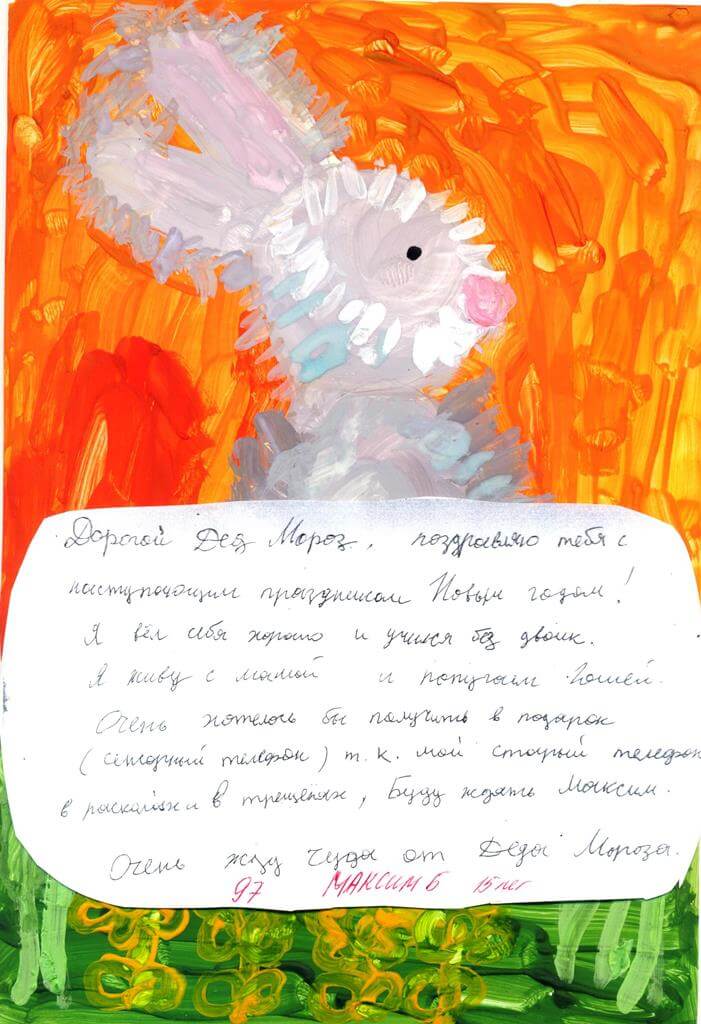 Дорогой Дед Мороз, поздравляю тебя с
наступающим праздником Новым годом!
Я вёл себя хорошо и учился без двоек.
Я живу с мамой и попугаем Гошей.
Очень хотелось бы получить в подарок
(сенсорный телефон) т.к. мой старый телефон
в и в трещенах, Буду ждать Максим.
Очень жду чуда от Деда Мороза.
97 МАКСИМ Б 15 лет